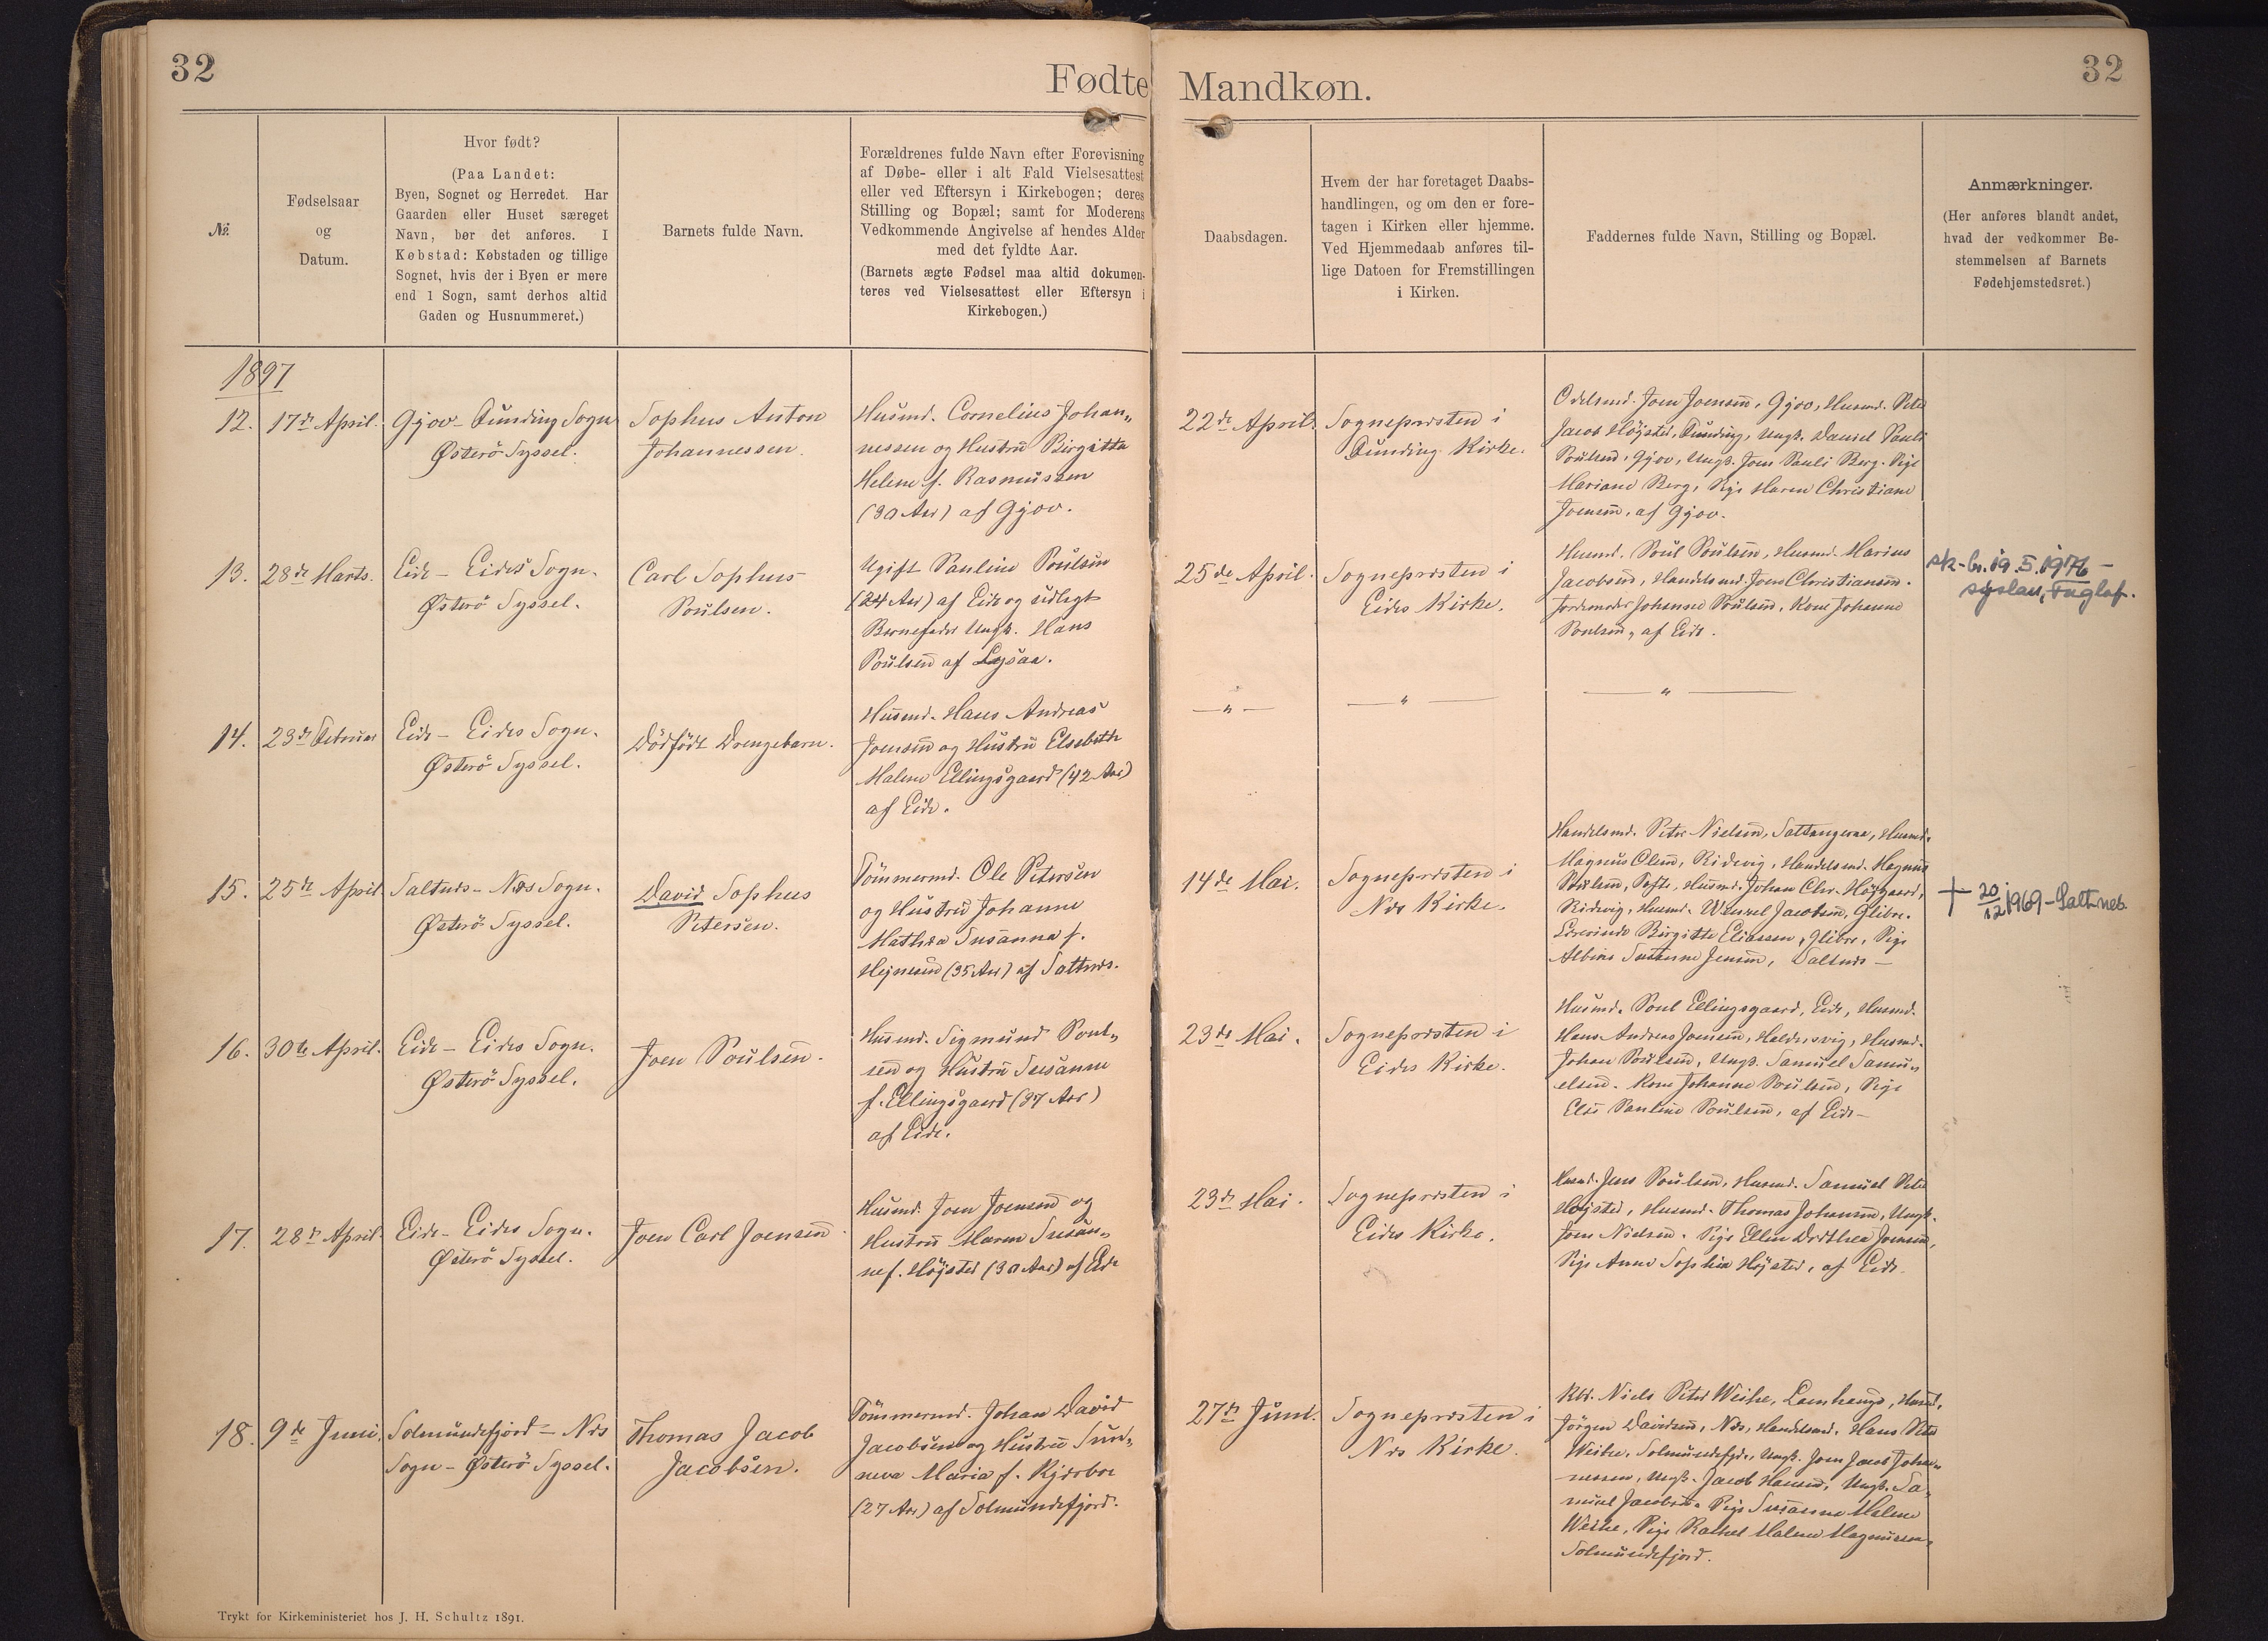 32
Fødte
Nº
Fødselsaar
og
Datum.
Hvor født?
(Paa Landet:
Byen, Sognet og Herredet. Har
Gaarden eller Huset særeget
Navn, bør det anføres. I
Købstad: Købstaden og tillige
Sognet, hvis der i Byen er mere
end 1 Sogn, samt derhos altid
Gaden og Husnummeret.)
Barnets fulde Navn.
Forældrenes fulde Navn efter Forevisning
af Døbe- eller i alt Fald Vielsesattest
eller ved Eftersyn i Kirkebogen; deres
Stilling og Bopæl; samt for Moderens
Vedkommende Angivelse af hendes Alder
med det fyldte Aar.
(Barnets ægte Fødsel maa altid dokumen-
teres ved Vielsesattest eller Eftersyn i
Kirkebogen.)
Mandkøn.
32
Daabsdagen.
Hvem der har foretaget Daabs-
handlingen, og om den er fore-
tagen i Kirken eller hjemme.
Ved Hjemmedaab anføres til-
lige Datoen for Fremstillingen
i Kirken.
Faddernes fulde Navn, Stilling og Bopæl.
Anmærkninger.
(Her anføres blandt andet,
hvad der vedkommer Be-
stemmelsen af Barnets
Fødehjemstedsret.)
1897
12.
17de April.
Gjov - Funding Sogn
Østerö Syssel.
Sophus Anton
Johannessen.
Husmd. Cornelius Johan„
nessen og Hustrü Birgitta
Helene f. Rasmussen
(30 Aar) af Gjov.
22de April.
Sognepræsten i
Funding Kirke.
Odelsmd. Joen Joensen, Gjov, Husmd. Peter
Jacob Højsted, Funding, Ungk. Daniel Pauli
Poülsen, Gjov, Ungk. Joen Pauli Berg. Pige
Mariane Berg, Pige Maren Christiane
Joensen, af Gjov.
13.
28de Marts.
Eide - Eides Sogn.
Østerö Syssel.
Carl Sophus
Poülsen.
Ugift Pauline Poülsen
(24 Aar) af Eide og udlagt
Barnefader Ungk. Hans
Poülsen af Lysaa.
25de April.
Sognepræsten i
Eides Kirke.
Husmd. Poul Poülsen, Husmd. Marius
Jacobsen, Handelsmd. Joen Christiansen.
Jordemoder Johanne Poülsen, Kone Johanne
Poulsen, af Eide.
sk-br. 19.5.1976 -
syslan, Fuglaf.
14.
23de Februar
Eide - Eides Sogn.
Østerö Syssel.
Dödfödt Drengebarn.
Husmd. Hans Andreas
Joensen og Hustrü Elsebeth
Malene Ellingsgaard (42 Aar)
af Eide.
— " —
— " —
— " —
15.
25de April
Saltnæs - Næs Sogn.
Østerö Syssel.
David Sophus
Petersen.
Tömmermd. Ole Petersen
og Hüstrü Johanne
Mathea Susanna f.
Hejnesen (35 Aar) af Saltnæs.
14de Mai.
Sognepræsten i
Næs Kirke.
Handelsmd. Peter Nielsen, Saltangeraa, Husmd.
Magnus Olsen, Ridevig, Handelsmd. Magnus
Poülsen, Tofte, Husmd. Johan Chr. Höjgaard,
Ridevig, Husmd. Wenzel Jacobsen, Glibre.
Birgitte Eliassen, Glibre, Pige
Albine Susanne Jensen, Saltnæs -
+ 20/12 1969 - Saltnes.
16.
30te April.
Eide - Eides Sogn.
Østerö Syssel.
Joen Poülsen.
Husmd. Sigmund Poul„
sen og Hustrü Susanne
f. Ellingsgaard (37 Aar)
af Eide.
23de Mai.
Sognepræsten i
Eides Kirke.
Husmd. Poul Ellingsgaard, Eide, Husmd.
Hans Andreas Joensen, Haldersvig, Husmd.
Johan Poülsen, Ungk. Samuel Samu„
elsen. Kone Johanne Poülsen, Pige
Else Pauline Poülsen, af Eide -
17.
28de April.
Eide - Eides Sogn.
Østerö Syssel.
Joen Carl Joensen
Husmd. Joen Joensen og
Hustrü Maren Susan„
ne f. Höjsted (30 Aar) af Eide
23de Mai.
Sognepræsten i
Eides Kirke.
Husmd. Jens Poülsen, Husmd. Samuel Peter
Højsted, Husmd. Thomas Johansen, Ungk.
Joen Nielsen. Pige Ellen Dorthea Joensen,
Pige Anne Sophia Højsted, af Eide.
18.
9de Juni.
Solmündefjord - Næs
Sogn - Østerö Syssel.
Thomas Jacob
Jacobsen.
Tömmermd. Johan David
Jacobsen og Hustrü Sun„
neva Maria f. Kjærbo
(27 Aar) af Solmundefjord.
27de Juni.
Sognepræsten i
Næs Kirke.
Niels Peter Weihe, Lamhauge, Husmd.
Jörgen Davidsen, Næs, Handelsmd. Hans Peter
Weihe, Solmundefjd., Ungk. Joen Jacob Johan„
nessen, Ungk. Jacob Hansen, Ungk. Sa„
muel Jacobsen. Pige Susanne Malene
Weihe, Pige Rakel Malene Magnussen,
Solmundefjord.
Trykt for Kirkeministeriet hos J. H. Schultz 1891.